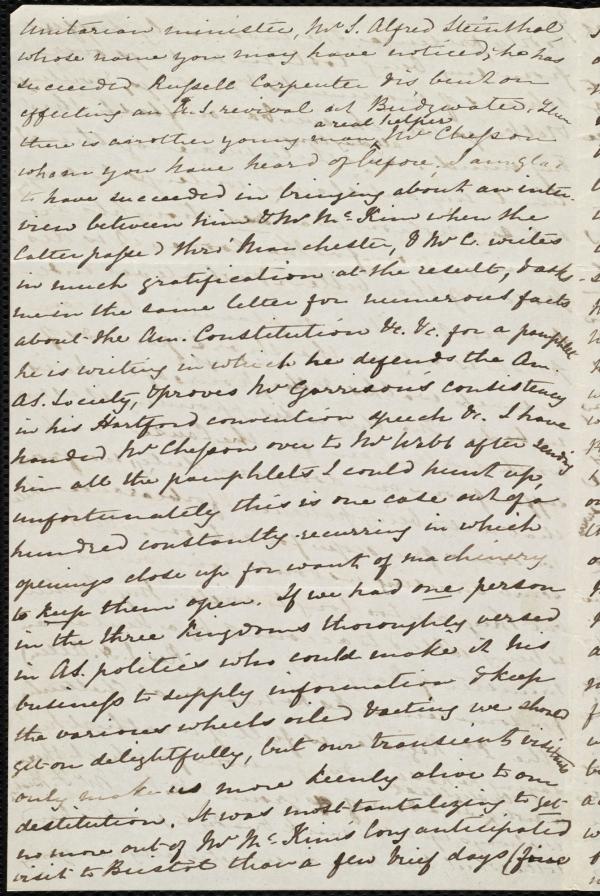 Unitarian minister, Mr. S. Alfred Steinthal,
whose name you may have noticed; he has
succeeded Russell Carpenter & is bent on
effecting an A.S. revival at Bridgwater. Then
a real helper
there is another young man, Mr Chesson
whom you have heard of before, I am glad
to have succeeded in bringing about an inter-
view between him & Mr McKim when the
latter passed thro' Manchester, & Mr C. writes
in much gratification at the result, & asks
me in the same letter for numerous facts
about the Am. Constitution &c. &c. for a pamphlet
he is writing in which he defends the Am.
AS. Society, & proves Mr Garrison's consistency
in his Hartford convention speech &c. I have
handed Mr Chesson over to Mr Webb after sending
him all the pamphlets I could hunt up,
unfortunately this is one case out of a
hundred constantly recurring in which
openings close up for want of machinery
to keep them open. If we had one person
in the three kingdoms thoroughly versed
in AS. politics who could make it his
business to supply information & keep
the various wheels oiled & acting we should
get on delightfully, but our transient visitants
only make us more keenly alive to our
destitution. It was most tantalizing to get
no more out of Mr McKim's long anticipated
visit to Bristol than a few brief days (fine